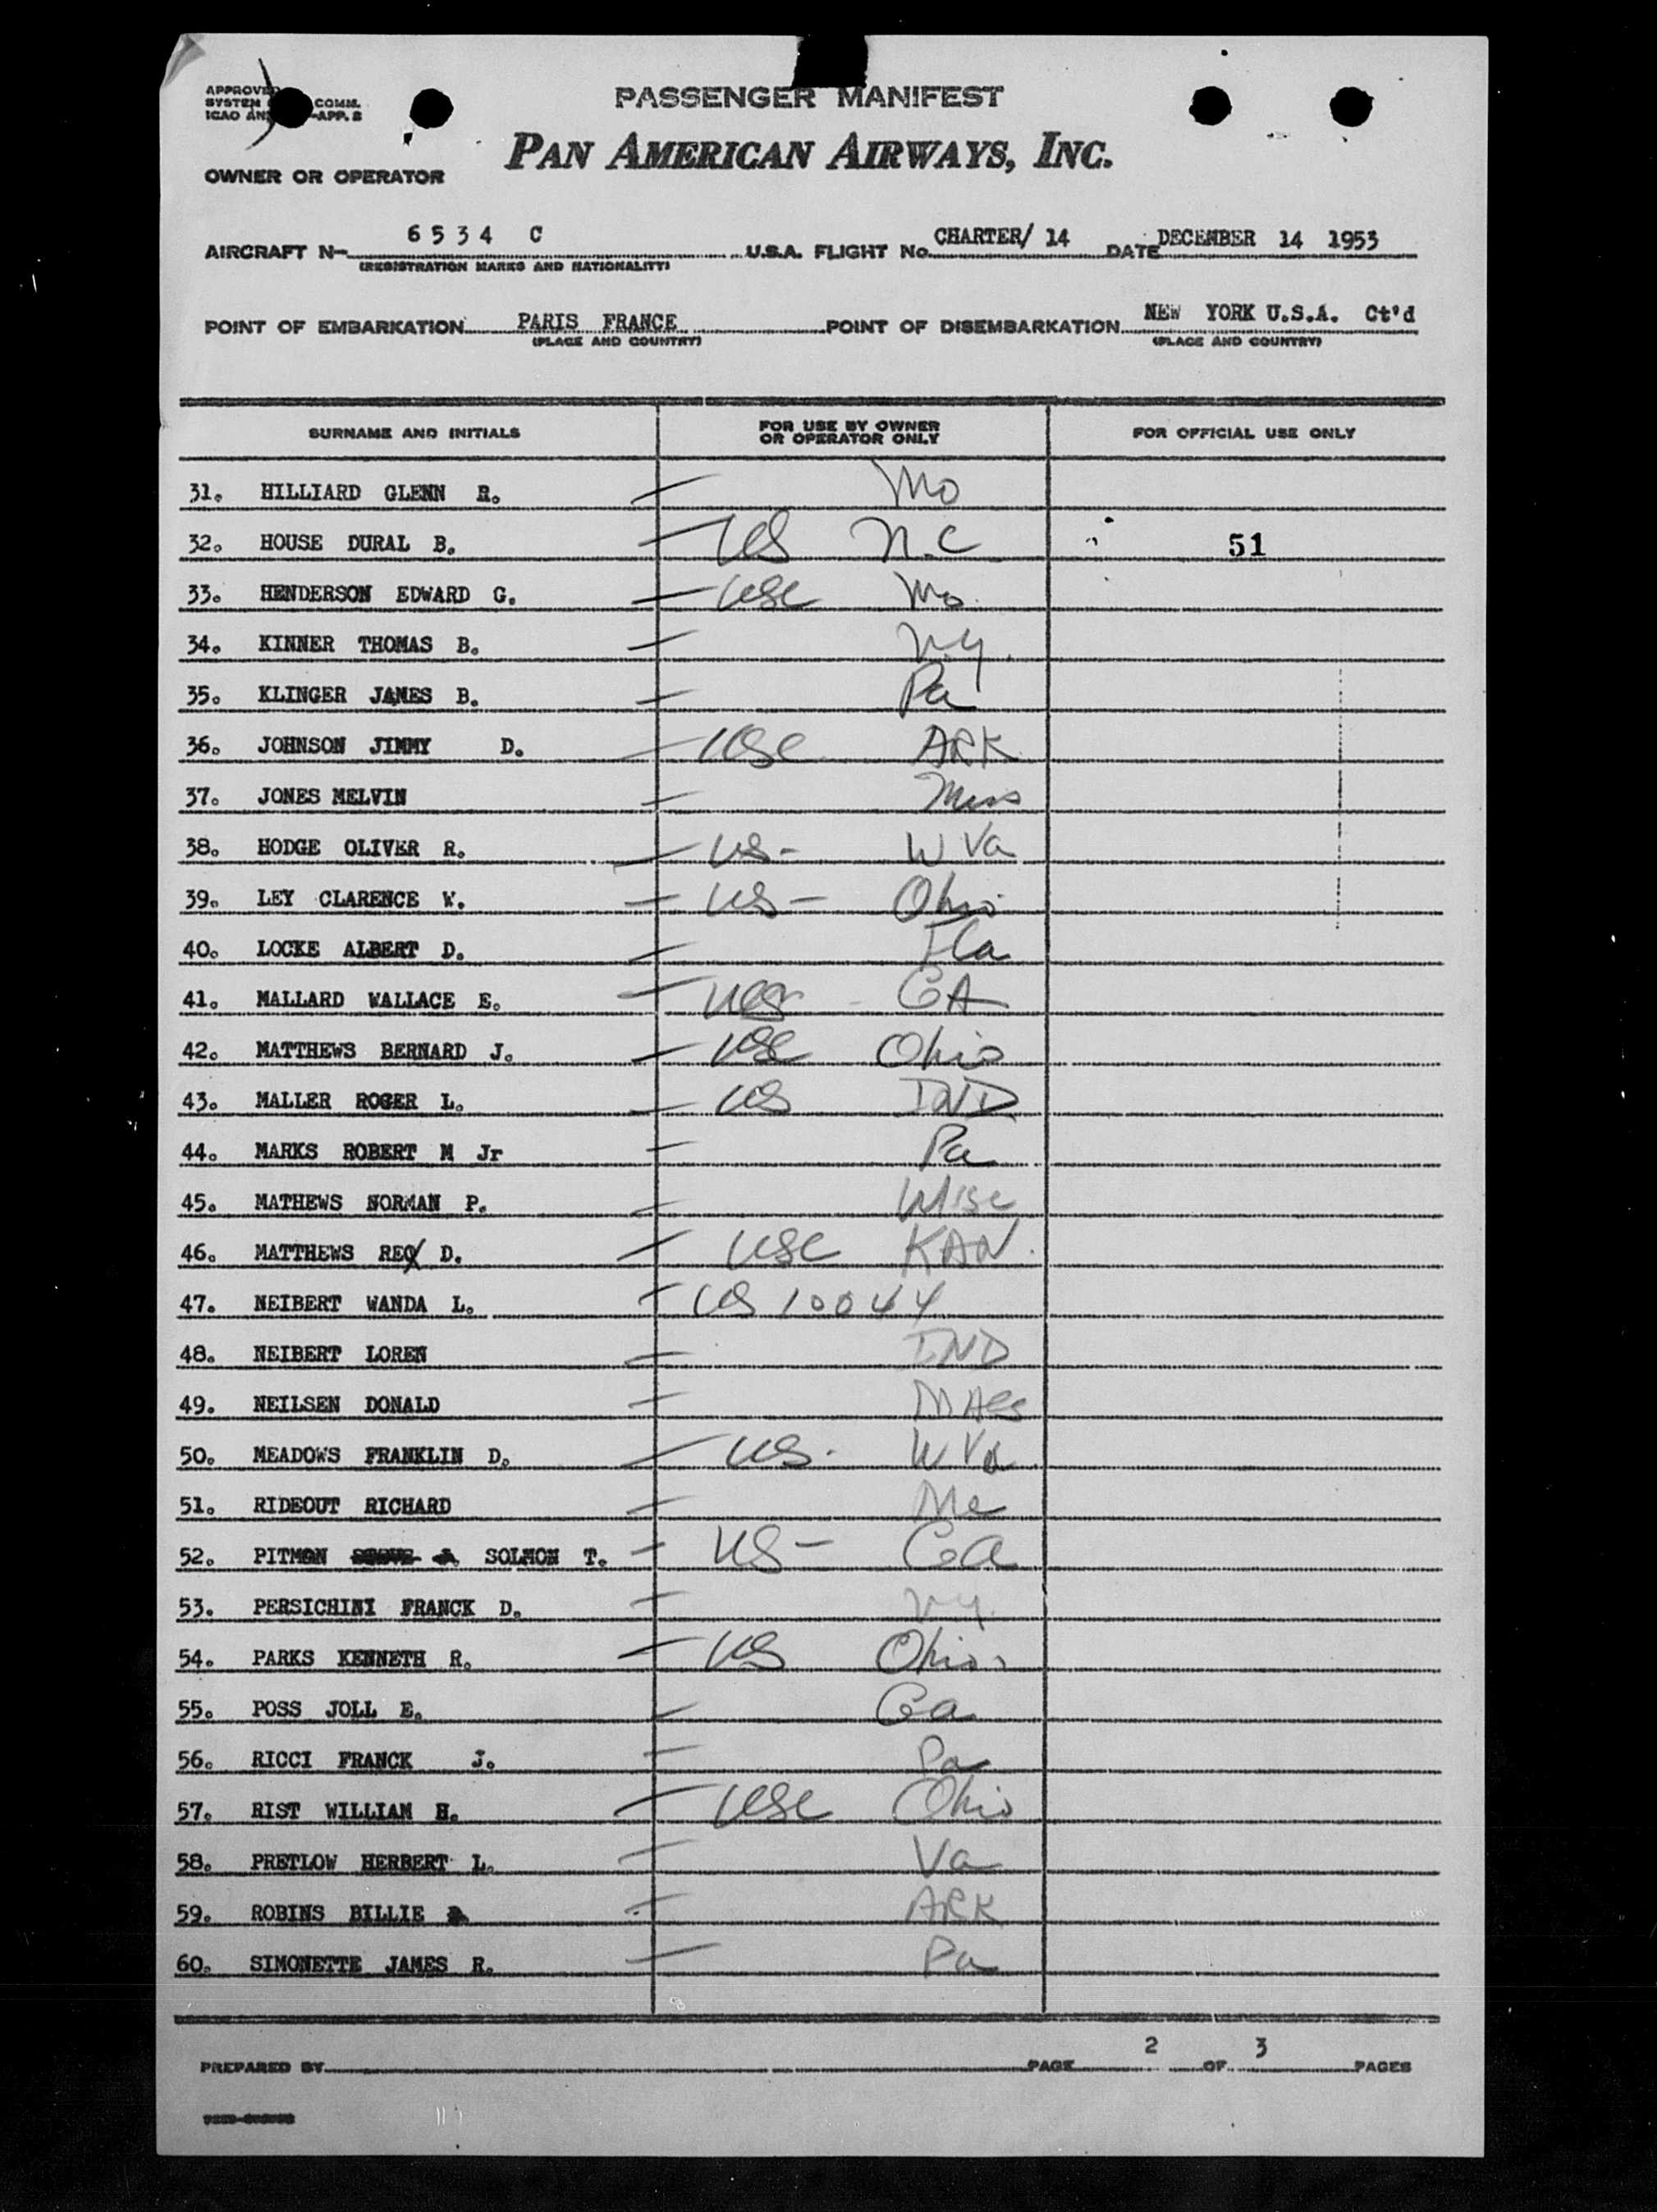 APPROVED
SYSTEM COMM.
ICAO AN -APP. 2
PASSENGER MANIFEST
PAN AMERICAN AIRWAYS, INC.
OWNER OR OPERATOR
AIRCRAFT N- 6534 C U.S.A. FLIGHT No. CHARTER/ 14 DATE DECEMBER 14 1953
(REGISTRATION MARKS AND NATIONALITY)
POINT OF EMBARKATION PARIS FRANCE POINT OF DISEMBARKATION NEW YORK U.S.A. Ct'd
(PLACE AND COUNTRY) (PLACE AND COUNTRY)
SURNAME AND INITIALS FOR USE BY OWNER OR OPERATOR ONLY FOR OFFICIAL USE ONLY
31. HILLIARD GLENN R. Mo
32. HOUSE DURAL B. US N.C 51
33. HENDERSON EDWARD G. USC Mo.
34. KINNER THOMAS B. N.Y.
35. KLINGER JAMES B. Pa
36. JOHNSON JIMMY D. USC ARK
37. JONES MELVIN Miss
38. HODGE OLIVER R. US- W Va
39. LEY CLARENCE W. US- Ohio
40. LOCKE ALBERT D. Fla
41. MALLARD WALLACE E. GA
42. MATTHEWS BERNARD J. USC Ohio
43. MALLER ROGER L. US IND
44. MARKS ROBERT M Jr Pa
45. MATHEWS NORMAN P. Wisc
46. MATTHEWS REX D. USC KAN.
47. NEIBERT WANDA L. US 10044
48. NEIBERT LOREN IND
49. NEILSEN DONALD MASS
50. MEADOWS FRANKLIN D. US. W Va
51. RIDEOUT RICHARD Me
52. PITMON SOLMON T. US- Ga
53. PERSICHINI FRANCK D. N.Y.
54. PARKS KENNETH R. US Ohio
55. POSS JOLL E. Ga
56. RICCI FRANCK J. Pa
57. RIST WILLIAM H. USC Ohio
58. PRETLOW HERBERT L. Va
59. ROBINS BILLIE ARK
60. SIMONETTE JAMES R. Pa
PREPARED BY PAGE 2 OF 3 PAGES